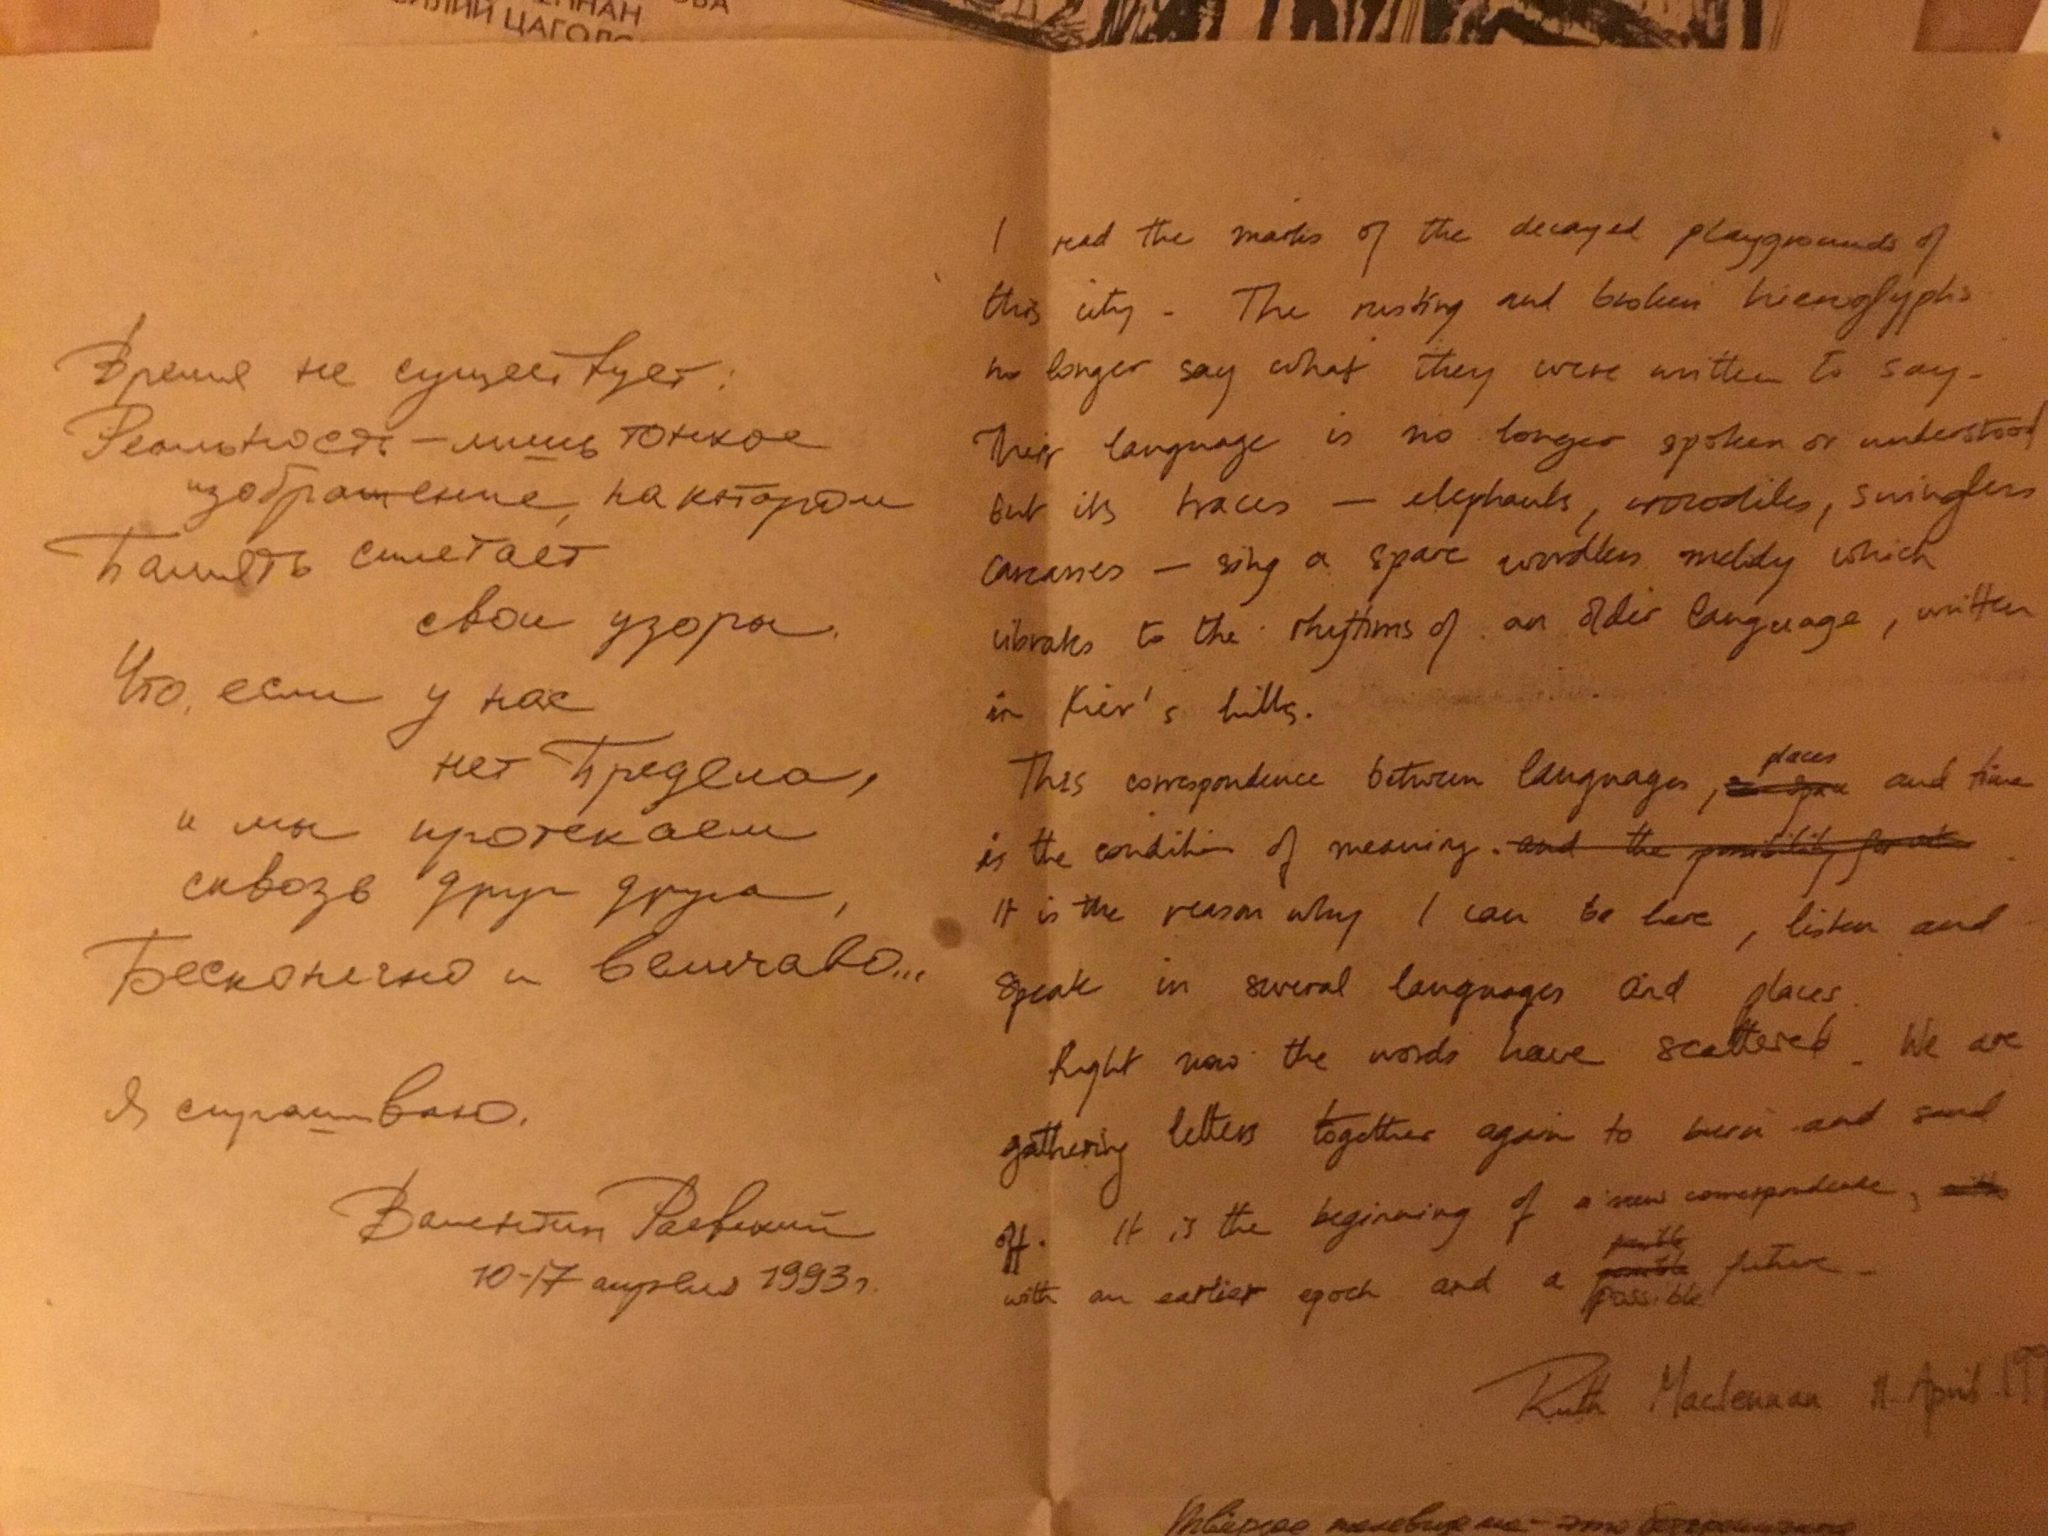 ОВА
ЕННАН
СИЛИЙ ЦАГОЛО
Время не существует:
Реальность – лишь тонкое
изображение, на котором
Память сплетает
свои узоры.
Что, если у нас
нет Предела,
и мы протекаем
сквозь друг друга,
Бесконечно и величаво...
Я спрашиваю.
Валентин Раевский
10-17 апреля 1993 г.
I read the marks of the decayed playgrounds of
this city. The rusting and broken hieroglyphs
no longer say what they were written to say.
Their language is no longer spoken or understood
but its traces – elephants, crocodiles, swingless
carcasses – sing a spare wordless melody which
vibrates to the rhythms of an older language, written
in Kiev's hills.
This correspondence between languages, places and time
is the condition of meaning. and the possibility for
It is the reason why I can be here, listen and
speak in several languages and places.
Right now the words have scattered. We are
gathering letters together again to burn and send
off. It is the beginning of a new correspondence, with
with an earlier epoch and a possible future.
Ruth Maclennan 11 April 199